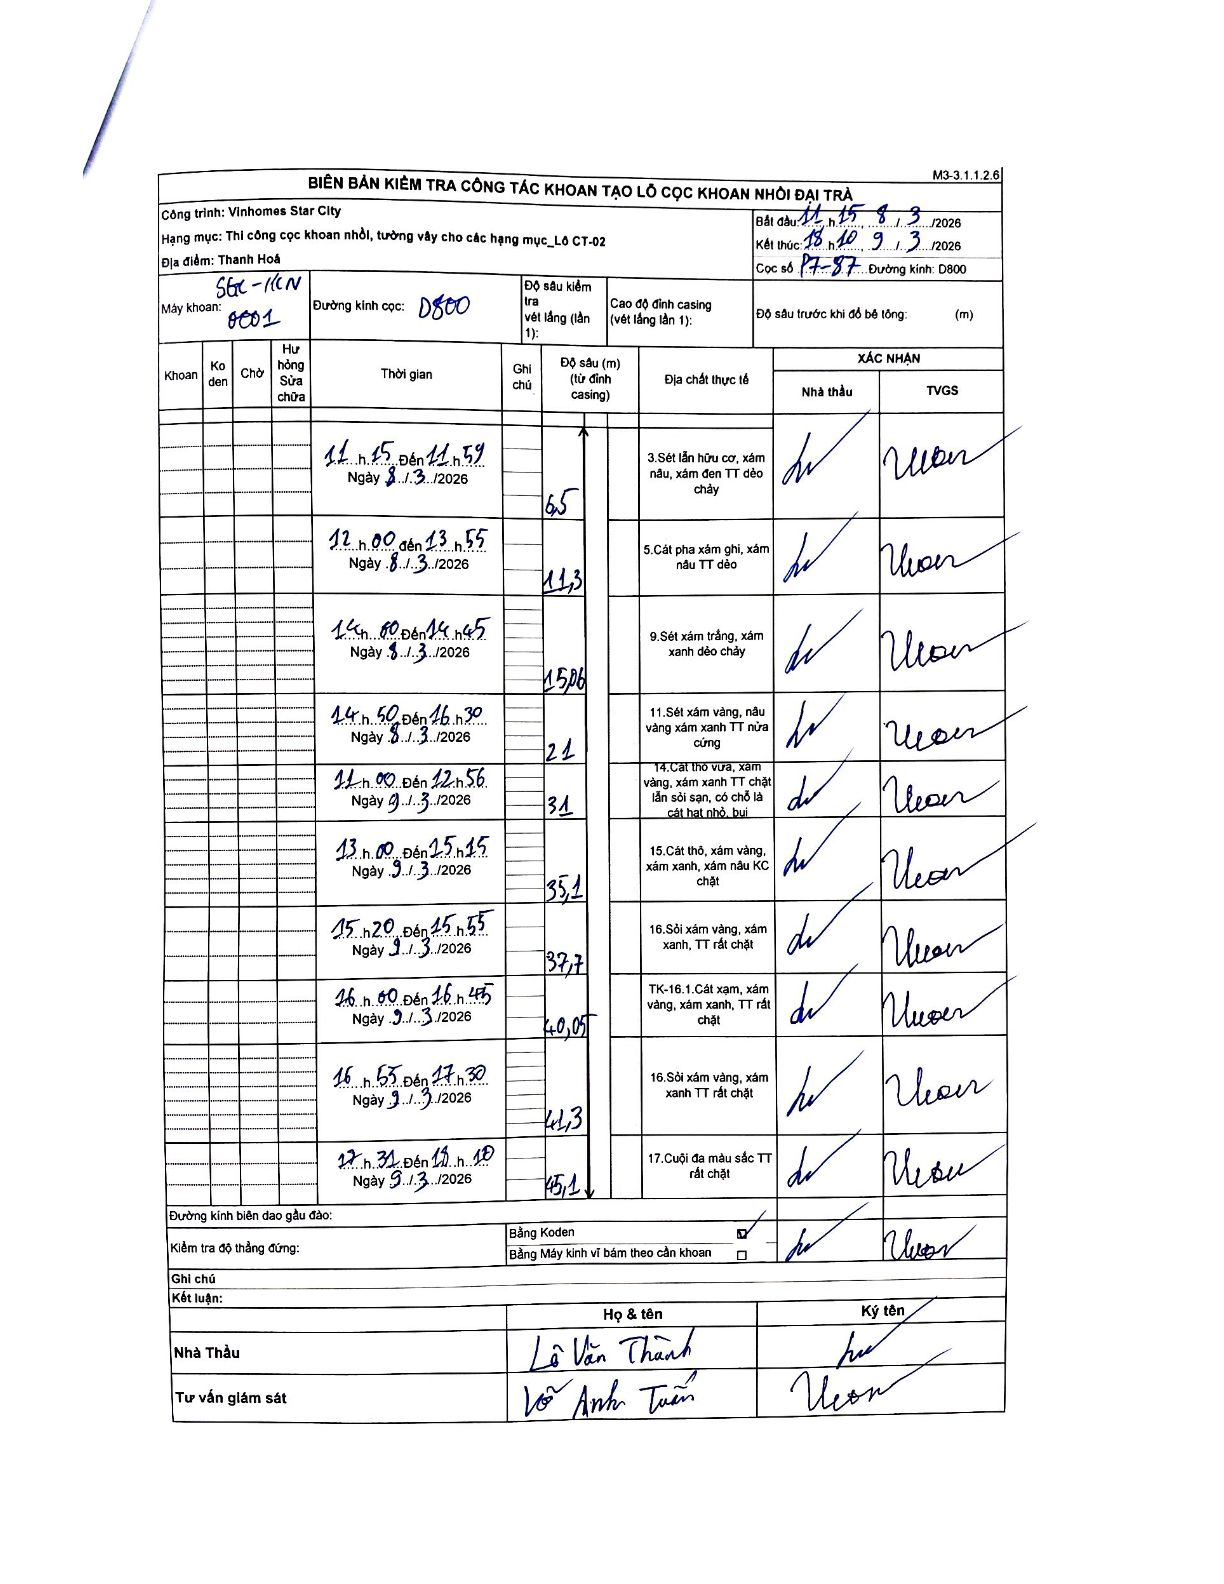 M3-3.1.1.2.6
BIÊN BẢN KIỂM TRA CÔNG TÁC KHOAN TẠO LỖ CỌC KHOAN NHỒI ĐẠI TRÀ
Công trình: Vinhomes Star City
Hạng mục: Thi công cọc khoan nhồi, tường vây cho các hạng mục_Lô CT-02
Địa điểm: Thanh Hoá
Bắt đầu: 11 h 15, 8 / 3 /2026
Kết thúc: 18 h 10, 9 / 3 /2026
Cọc số P7-87 Đường kính: D800
Máy khoan: 0001
Đường kính cọc: D800
Độ sâu kiểm tra vét lắng (lần 1):
Cao độ đỉnh casing (vét lắng lần 1):
Độ sâu trước khi đổ bê tông: (m)
Khoan
Ko den
Chờ
Hư hỏng Sửa chữa
Thời gian
Ghi chú
Độ sâu (m) (từ đỉnh casing)
Địa chất thực tế
XÁC NHẬN
Nhà thầu
TVGS
11 h 15 Đến 11 h 59
Ngày 8 / 3 /2026
6,5
3.Sét lẫn hữu cơ, xám nâu, xám đen TT dẻo chảy
12 h 00 đến 13 h 55
Ngày 8 / 3 /2026
11,3
5.Cát pha xám ghi, xám nâu TT dẻo
14 h 00 Đến 14 h 45
Ngày 8 / 3 /2026
15,06
9.Sét xám trắng, xám xanh dẻo chảy
14 h 50 Đến 16 h 30
Ngày 8 / 3 /2026
21
11.Sét xám vàng, nâu vàng xám xanh TT nửa cứng
11 h 00 Đến 12 h 56
Ngày 9 / 3 /2026
31
14.Cát thô vừa, xám vàng, xám xanh TT chặt lẫn sỏi sạn, có chỗ là cát hạt nhỏ, bụi
13 h 00 Đến 15 h 15
Ngày 9 / 3 /2026
35,1
15.Cát thô, xám vàng, xám xanh, xám nâu KC chặt
15 h 20 Đến 15 h 55
Ngày 9 / 3 /2026
37,7
16.Sỏi xám vàng, xám xanh, TT rất chặt
16 h 00 Đến 16 h 45
Ngày 9 / 3 /2026
40,05
TK-16.1.Cát xạm, xám vàng, xám xanh, TT rất chặt
16 h 55 Đến 17 h 30
Ngày 9 / 3 /2026
41,3
16.Sỏi xám vàng, xám xanh TT rất chặt
17 h 31 Đến 18 h 10
Ngày 9 / 3 /2026
45,1
17.Cuội đa màu sắc TT rất chặt
Đường kính biên dao gầu đào:
Kiểm tra độ thẳng đứng:
Bằng Koden
Bằng Máy kinh vĩ bám theo cần khoan
Ghi chú
Kết luận:
Họ & tên
Ký tên
Nhà Thầu
Lê Văn Thành
Tư vấn giám sát
Võ Anh Tuấn